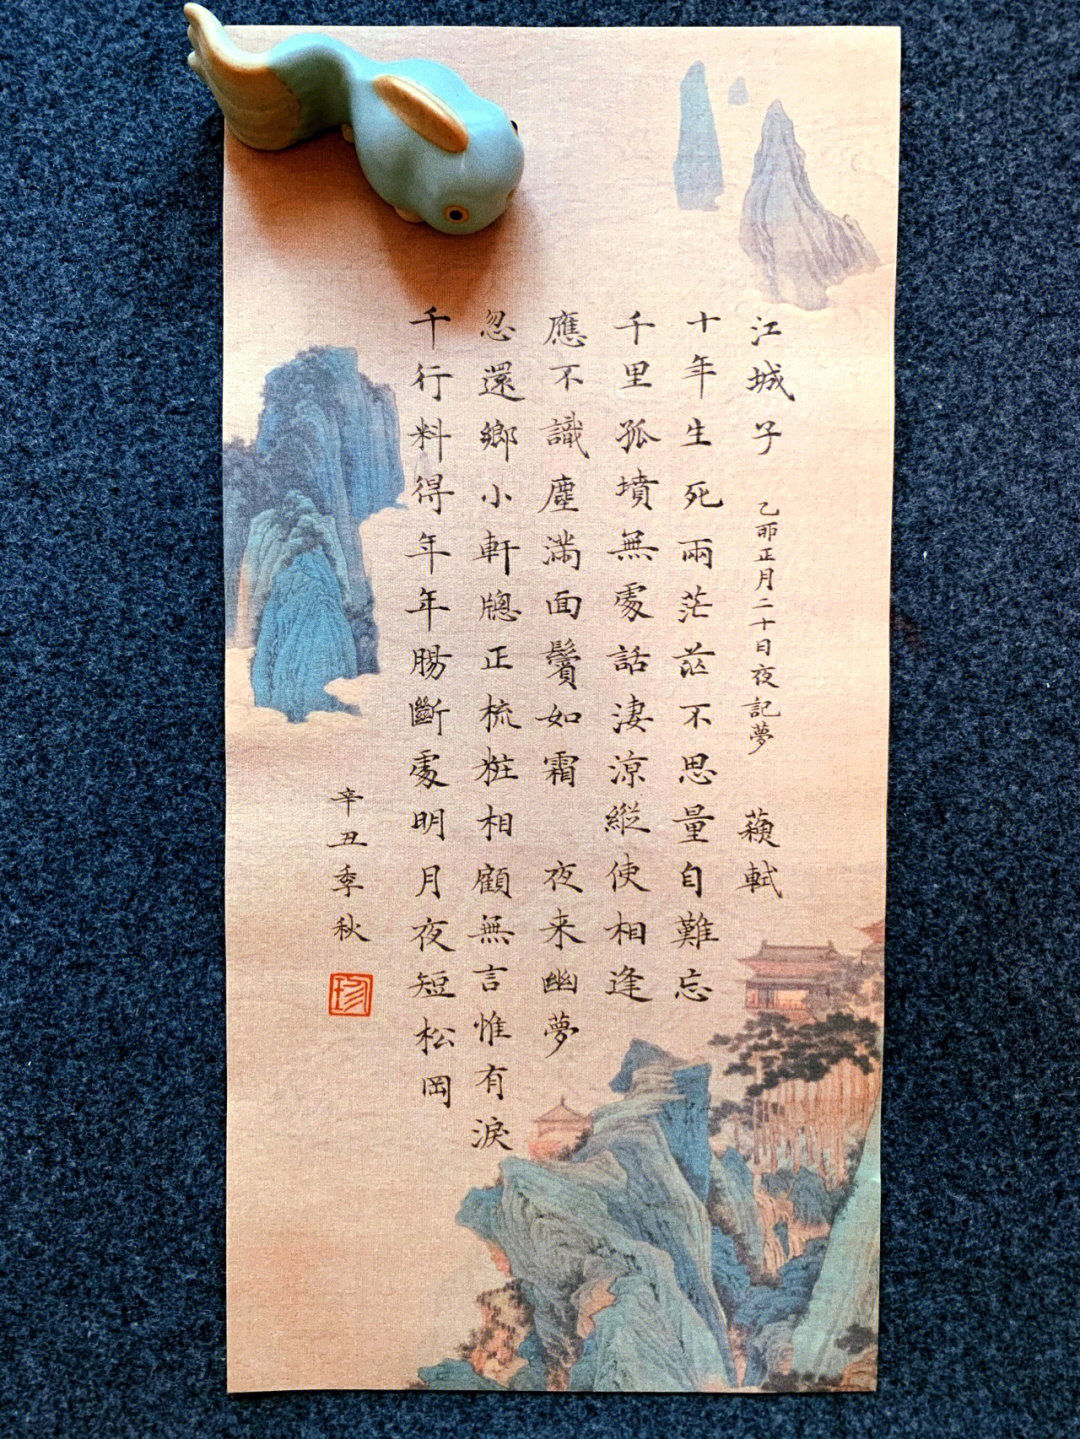 江城子 乙卯正月二十日夜記夢 蘓軾
十年生死兩茫茫不思量自難忘
千里孤墳無處話淒涼縱使相逢
應不識塵滿面鬢如霜 夜来幽夢
忽還鄉小軒牕正梳粧相顧無言惟有淚
千行料得年年腸斷處明月夜短松岡
辛丑季秋
珍